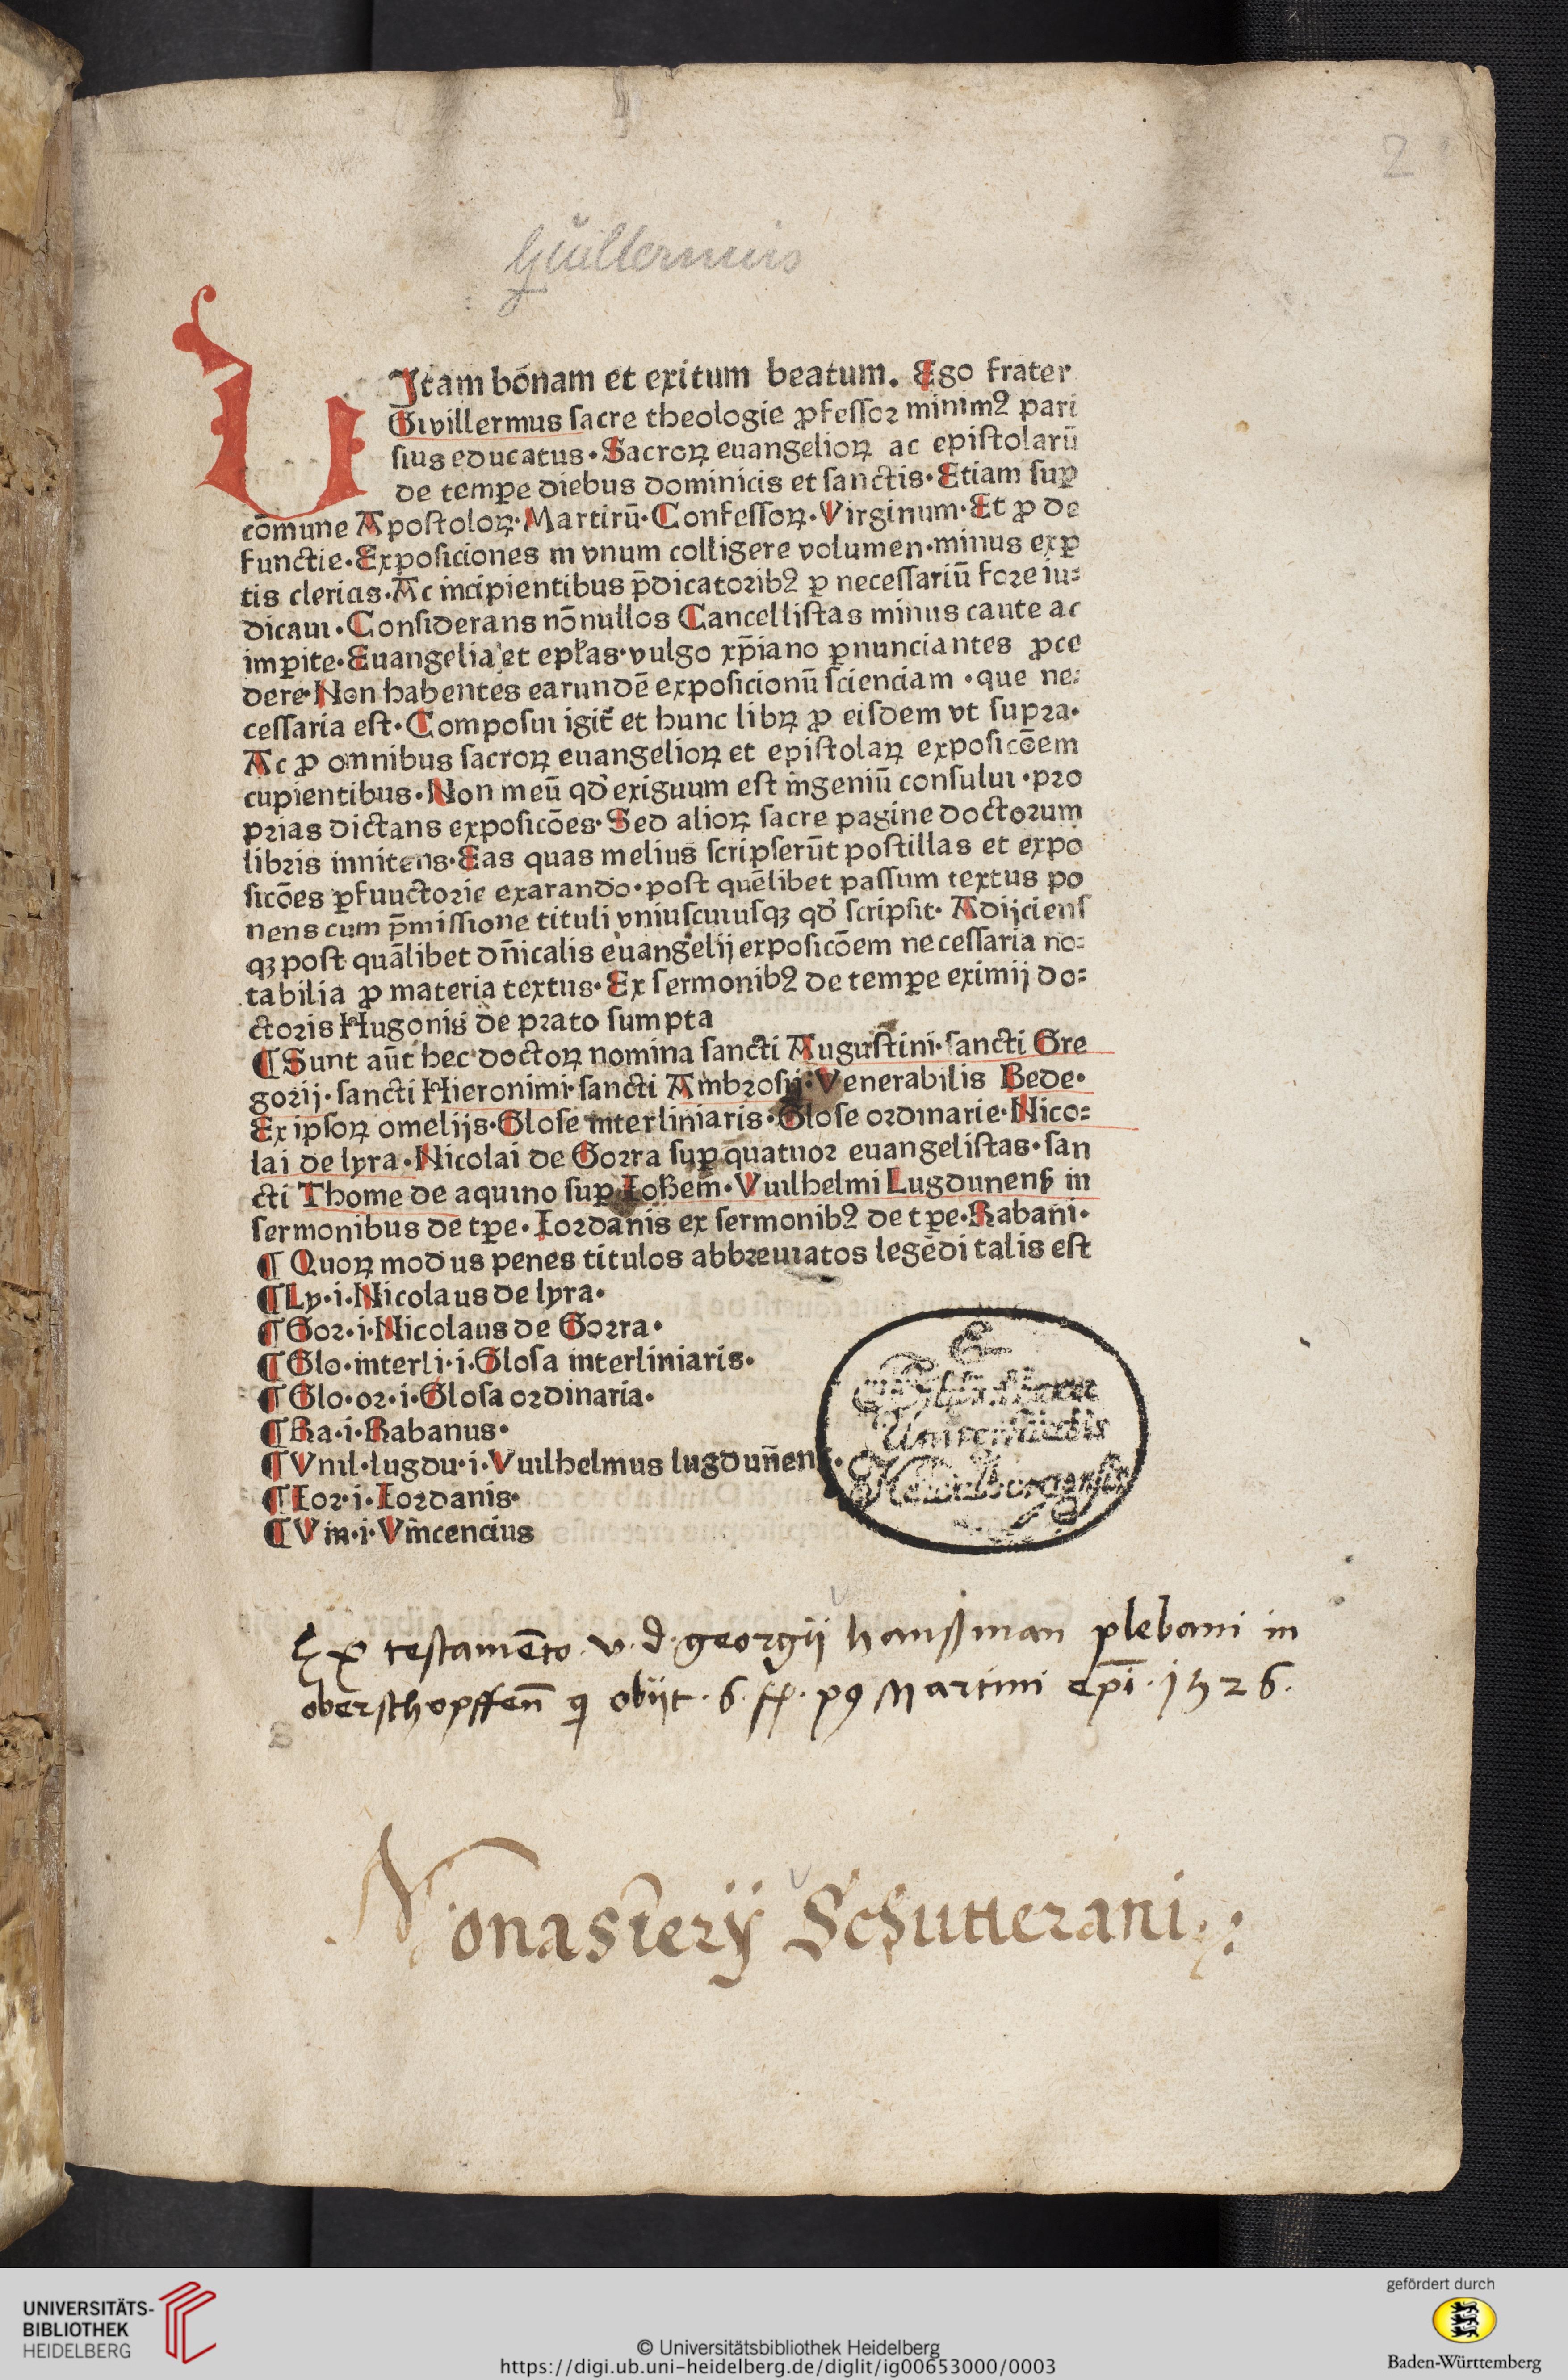 2
Guillermus
VJtam bonam et exitum beatum. Ego frater
Gwillermus sacre theologie ꝓfessor minimꝰ pari
sius educatus. Sacroꝝ euangelioꝝ ac epistolarū
de tempe̱ diebus dominicis et sanctis. Etiam suꝑ
cōmune Apostoloꝝ. Martirū. Confessoꝝ. Virginum. Et ꝓ de
functie. Exposiciones in vnum colligere volumen. minus exꝑ
tis clericis. Ac incipientibus p̄dicatoribꝰ ꝑ necessariū fore iu⸗
dicaui. Considerans nōnullos Cancellistas minus caute ac
imꝑite. Euangelia et epl̄as. vulgo xp̄iano ꝓnunciantes ꝓce
dere. Non habentes earundē exposicionū scienciam. que ne⸗
cessaria est. Composui igit̄ et hunc libꝝ ꝓ eisdem vt supra.
Ac ꝓ omnibus sacroꝝ euangelioꝝ et epistolaꝝ exposicōem
cupientibus. Non meū qd̓ exiguum est ingeniū consului. pro
prias dictans exposicōes. Sed alioꝝ sacre pagine doctorum
libris innitens. Eas quas melius scripserūt postillas et expo
sicōes ꝑfuuctorie exarando. post quēlibet passum textus po
nens cum p̄missione tituli vniuscuiusqꝫ qd̓ scripsit. Adijciens
qꝫ post quālibet dn̄icalis euangelij exposicōem necessaria no⸗
tabilia ꝓ materia textus. Ex sermonibꝰ de temꝑe eximij do⸗
ctoris Hugonis de prato sumpta
¶ Sunt aūt hec doctoꝝ nomina sancti Augustini. sancti Gre
gorij. sancti Hieronimi. sancti Ambrosij. Venerabilis Bede.
Ex ipsoꝝ omelijs. Glose interliniaris. Glose ordinarie. Nico⸗
lai de lyra. Nicolai de Gorra suꝑ quatuor euangelistas. san
cti Thome de aquino suꝑ Ioh̄em. Vuilhelmi Lugdunens̄ in
sermonibus de tꝑe. Iordanis ex sermonibꝰ de tꝑe. Rabani.
¶ Quoꝝ modus penes titulos abbreuiatos legēdi talis est
¶ Ly. i. Nicolaus de lyra.
¶ Gor. i. Nicolaus de Gorra.
¶ Glo. interli. i. Glosa interliniaris.
¶ Glo. or. i. Glosa ordinaria.
¶ Ra. i. Rabanus.
¶ Vuil. lugdu. i. Vuilhelmus lugdun̄ens.
¶ Ior. i. Iordanis.
¶ Vin. i. Vincencius
E
Bibliotheca
Universitatis
Heidelbergensis
Ex testamēto v. d. georgij hanßman plebani in
oberschopffen̄ qͥ obijt. 6. ff. pꝰ Martini ep̄i. 1526.
Monasterij Schutterani
UNIVERSITÄTS-
BIBLIOTHEK
HEIDELBERG
© Universitätsbibliothek Heidelberg
https://digi.ub.uni-heidelberg.de/diglit/ig00653000/0003
gefördert durch
Baden-Württemberg